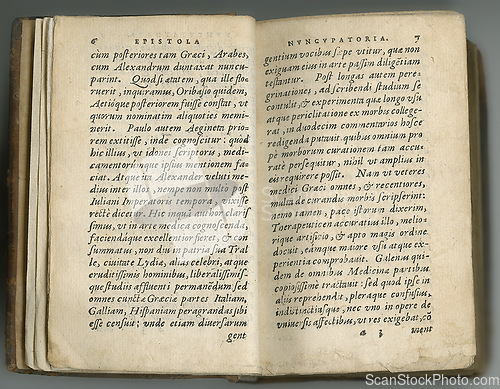 6 EPISTOLA
cùm posteriores tam Græci, Arabes,
cum Alexandrum duntaxat nuncu-
parint. Quòd si ætatem, qua ille flo-
ruerit, inquiramus, Oribasio quidem,
Aetióque posteriorem fuisse constat, vt
quorum nominatim aliquoties memi-
nerit. Paulo autem Aegineta prio-
rem extitisse, inde cognoscitur: quòd
hic illius, vt idonei scriptoris, medi-
camentorúmque ipsius mentionem fa-
ciat. Atque ita Alexander veluti me-
dius inter illos, nempe non multo post
Iuliani Imperatoris tempora, vixisse
rectè dicetur. Hic inquã author claris
simus, vt in arte medica cognoscenda,
faciendáque excellentior fieret, & con
summatus, non domi in patria sua Tral
le, ciuitate Lydiæ, alias celebri, atque
eruditissimis hominibus, liberalissimís-
que studiis affluenti permanẽdum sed
omnes cunctæ Græciæ partes Italiam,
Galliam, Hispaniam peragrandas sibi
esse censuit; vnde etiam diuersarum
gent
NVNCVPATORIA. 7
gentium vocibus sæpe vtitur, quæ non
exiguam eius in arte passim diligẽtiam
testantur. Post longas autem pere-
grinationes, ad scribendi studium se
contulit, & experimenta quæ longo vsu
atque periclitatione ex morbis college-
rat, in duodecim commentarios hosce
redigenda putauit quibus omnium pro
pè morborum curationem tam accu-
ratè persequitur, nihil vt amplius in
eis requirere possit. Nam vt veteres
medici Græci omnes, & recentiores,
multa de curandis morbis scripserint:
nemo tamen, pace istorum dixerim,
Therapeuticen accuratius illo, melio-
rique artificio, & apto magis ordine
docuit, eámque maiore vsu atque ex-
perientia comprobauit. Galenus qui-
dem de omnibus Medicinæ partibus
copiosissimè tractauit: sed quod ipse in
aliis reprehendit, pleraque confusius,
indistinctiúsque, nec vno in opere de
vniuersis affectibus, vt res exigebat, cõ
a 3 ment
ScanStockPhoto.com